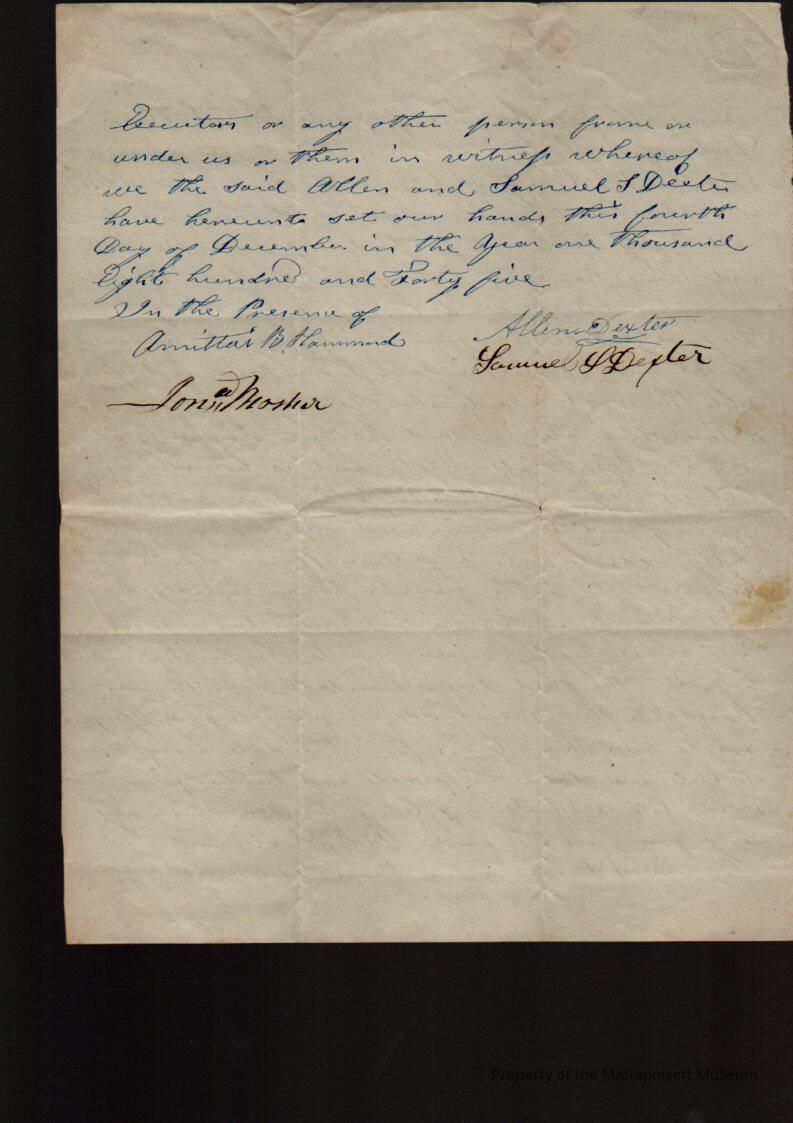 Executors or any other person frome or
under us or them in witness whereof
we the said Allen and Samuel S Dexter
have hereunto set our hands this fourth
Day of December in the Year one thousand
Eight hundred and Forty five
In the Presence of
Amittai B. Hammond
Allen Dexter
Samuel S Dexter
Jona Mosher
Property of the Mattapoisett Museum